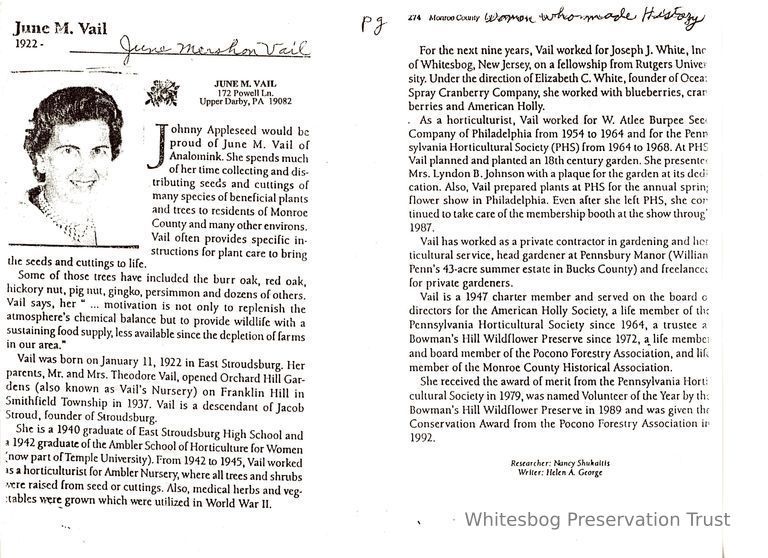 June M. Vail
1922 -
June Mershon Vail
JUNE M. VAIL
172 Powell Ln.
Upper Darby, PA 19082
Johnny Appleseed would be
proud of June M. Vail of
Analomink. She spends much
of her time collecting and dis-
tributing seeds and cuttings of
many species of beneficial plants
and trees to residents of Monroe
County and many other environs.
Vail often provides specific in-
structions for plant care to bring
the seeds and cuttings to life.
Some of those trees have included the burr oak, red oak,
hickory nut, pig nut, gingko, persimmon and dozens of others.
Vail says, her " ... motivation is not only to replenish the
atmosphere's chemical balance but to provide wildlife with a
sustaining food supply, less available since the depletion of farms
in our area."
Vail was born on January 11, 1922 in East Stroudsburg. Her
parents, Mr. and Mrs. Theodore Vail, opened Orchard Hill Gar-
dens (also known as Vail's Nursery) on Franklin Hill in
Smithfield Township in 1937. Vail is a descendant of Jacob
Stroud, founder of Stroudsburg.
She is a 1940 graduate of East Stroudsburg High School and
a 1942 graduate of the Ambler School of Horticulture for Women
(now part of Temple University). From 1942 to 1945, Vail worked
as a horticulturist for Ambler Nursery, where all trees and shrubs
were raised from seed or cuttings. Also, medical herbs and veg-
etables were grown which were utilized in World War II.
pg 274 Monroe County Women who made History
For the next nine years, Vail worked for Joseph J. White, Inc
of Whitesbog, New Jersey, on a fellowship from Rutgers Univer
sity. Under the direction of Elizabeth C. White, founder of Ocea
Spray Cranberry Company, she worked with blueberries, cran
berries and American Holly.
As a horticulturist, Vail worked for W. Atlee Burpee See
Company of Philadelphia from 1954 to 1964 and for the Penn
sylvania Horticultural Society (PHS) from 1964 to 1968. At PHS
Vail planned and planted an 18th century garden. She presente
Mrs. Lyndon B. Johnson with a plaque for the garden at its dedi
cation. Also, Vail prepared plants at PHS for the annual spring
flower show in Philadelphia. Even after she left PHS, she con
tinued to take care of the membership booth at the show throug
1987.
Vail has worked as a private contractor in gardening and hor
ticultural service, head gardener at Pennsbury Manor (William
Penn's 43-acre summer estate in Bucks County) and freelanced
for private gardeners.
Vail is a 1947 charter member and served on the board o
directors for the American Holly Society, a life member of the
Pennsylvania Horticultural Society since 1964, a trustee a
Bowman's Hill Wildflower Preserve since 1972, a life member
and board member of the Pocono Forestry Association, and life
member of the Monroe County Historical Association.
She received the award of merit from the Pennsylvania Horti
cultural Society in 1979, was named Volunteer of the Year by the
Bowman's Hill Wildflower Preserve in 1989 and was given the
Conservation Award from the Pocono Forestry Association in
1992.
Researcher: Nancy Shukaitis
Writer: Helen A. George
Whitesbog Preservation Trust